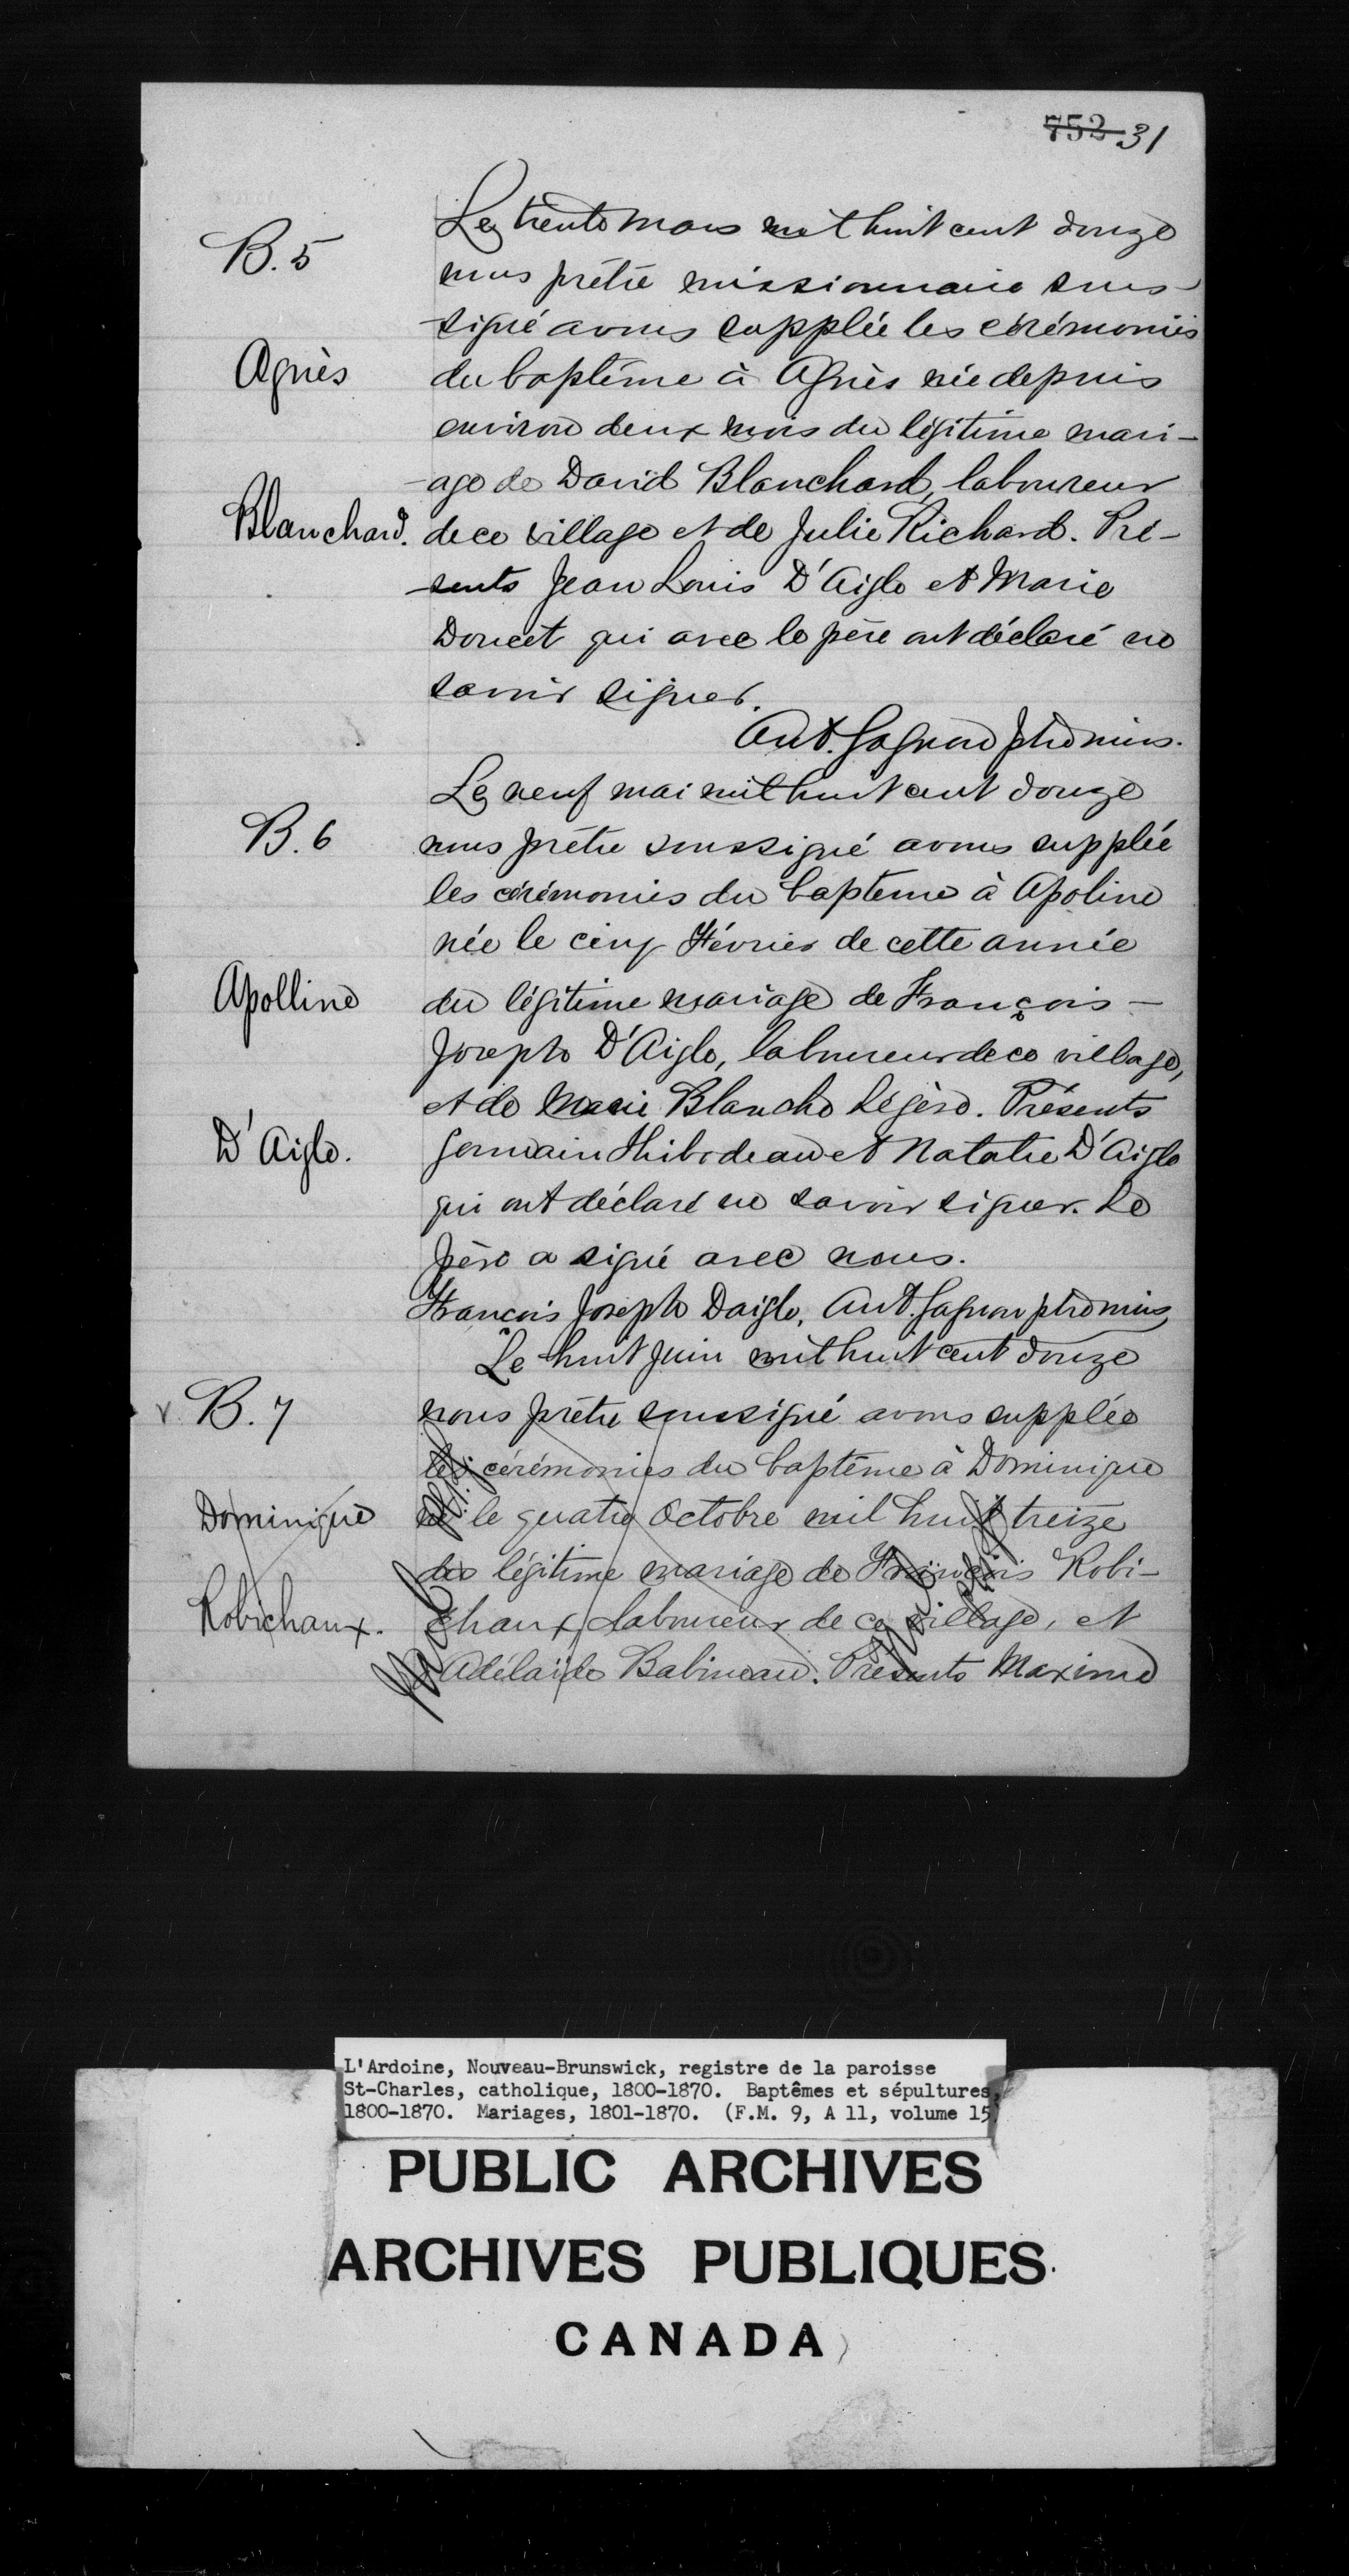 752 31
B. 5
Agnès
Blanchard.
Le trente mars mil huit cent douze
nous prêtre missionnaire sous-
signé avons supplée les cérémonies
du baptême à Agnès née depuis
environ deux mois du légitime mari-
age de David Blanchard, laboureur
de ce village et de Julie Richard. Pré-
sents Jean Louis D'Aigle et Marie
Doucet qui avec le père ont déclaré ne
savoir signer.
Ant. Gagnon ptre miss.
B. 6
Apolline
D'Aigle.
Le neuf mai mil huit cent douze
nous prêtre soussigné avons supplée
les cérémonies du baptême à Apoline
née le cinq Février de cette année
du légitime mariage de François-
Joseph D'Aigle, laboureur de ce village,
et de Marie Blanche Légère. Présents
Germain Thibodeau et Natalie D'Aigle
qui ont déclaré ne savoir signer. Le
père a signé avec nous.
François Joseph Daigle, Ant. Gagnon ptre miss
B. 7
Dominique
Robichaux.
Le huit juin mil huit cent douze
nous prêtre soussigné avons supplée
les cérémonies du baptême à Dominique
né le quatre Octobre mil huit treize
du légitime mariage de François Robi-
chaux, laboureur de ce village, et
Adélaïde Babineau. Présents Maxime
L'Ardoine, Nouveau-Brunswick, registre de la paroisse
St-Charles, catholique, 1800-1870. Baptêmes et sépultures,
1800-1870. Mariages, 1801-1870. (F.M. 9, A 11, volume 15)
PUBLIC ARCHIVES
ARCHIVES PUBLIQUES
CANADA